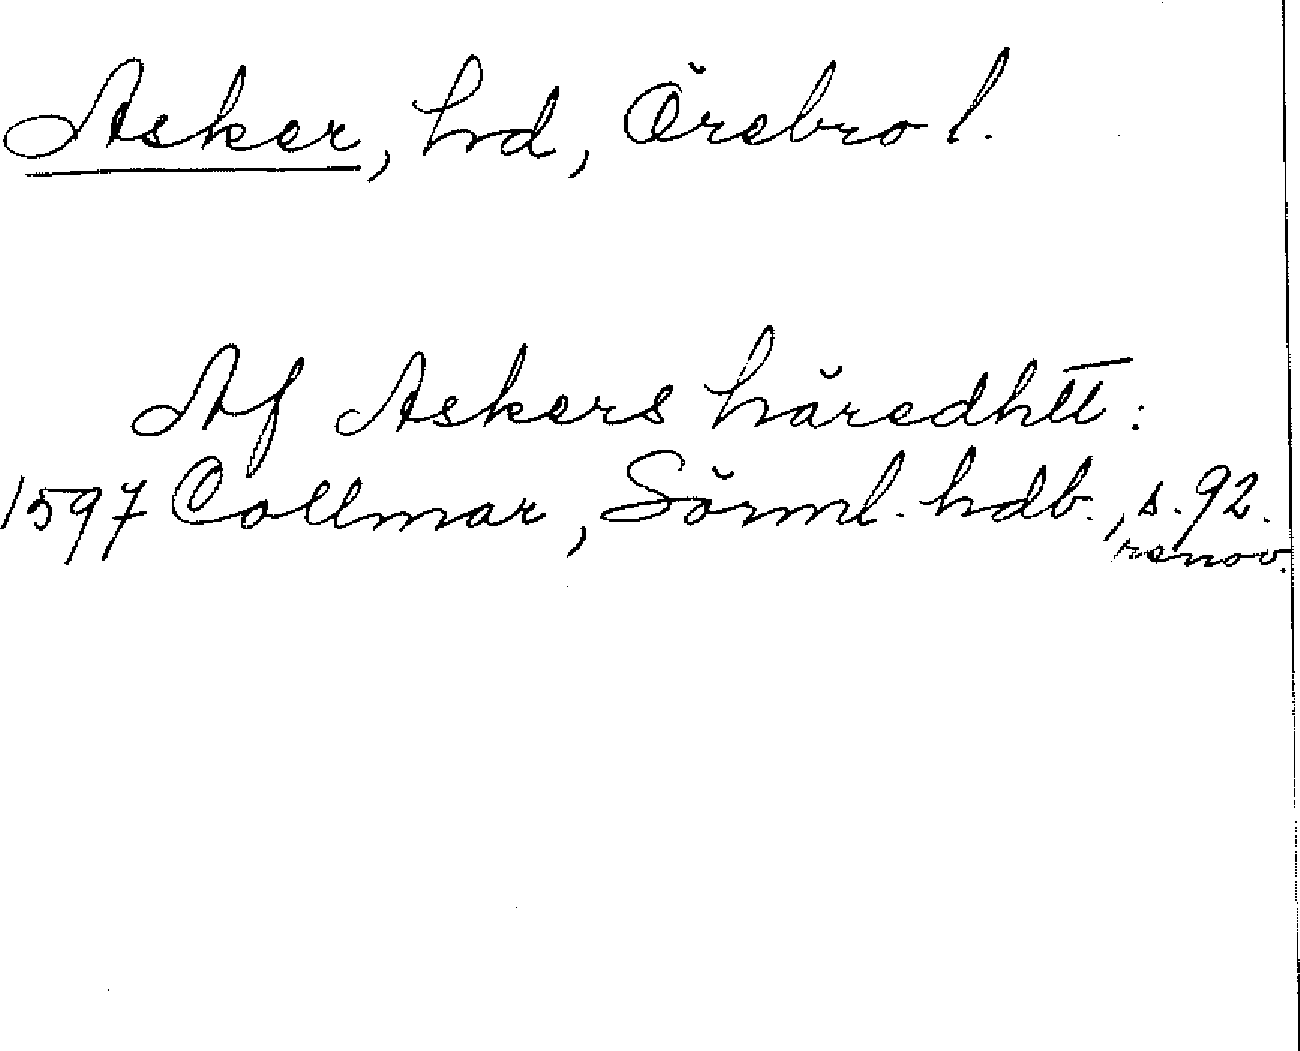 Asker, hd, Örebro l.
Af Askers häredhtt:
1597 Collmar, Sörml. hdb., s. 92.
renov.